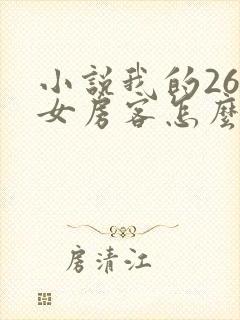 小説我的26
女房客怎麼
房清江